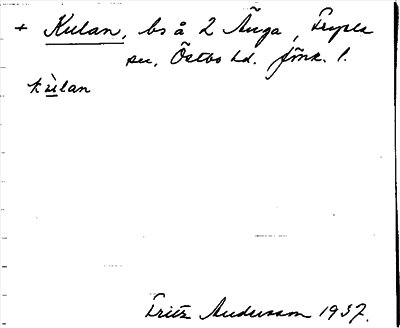 + Kulan, bs å 2 Änga, Tryela
sn, Östbo hd. Jönk. l.
kùlan
Fritz Andersson 1937.